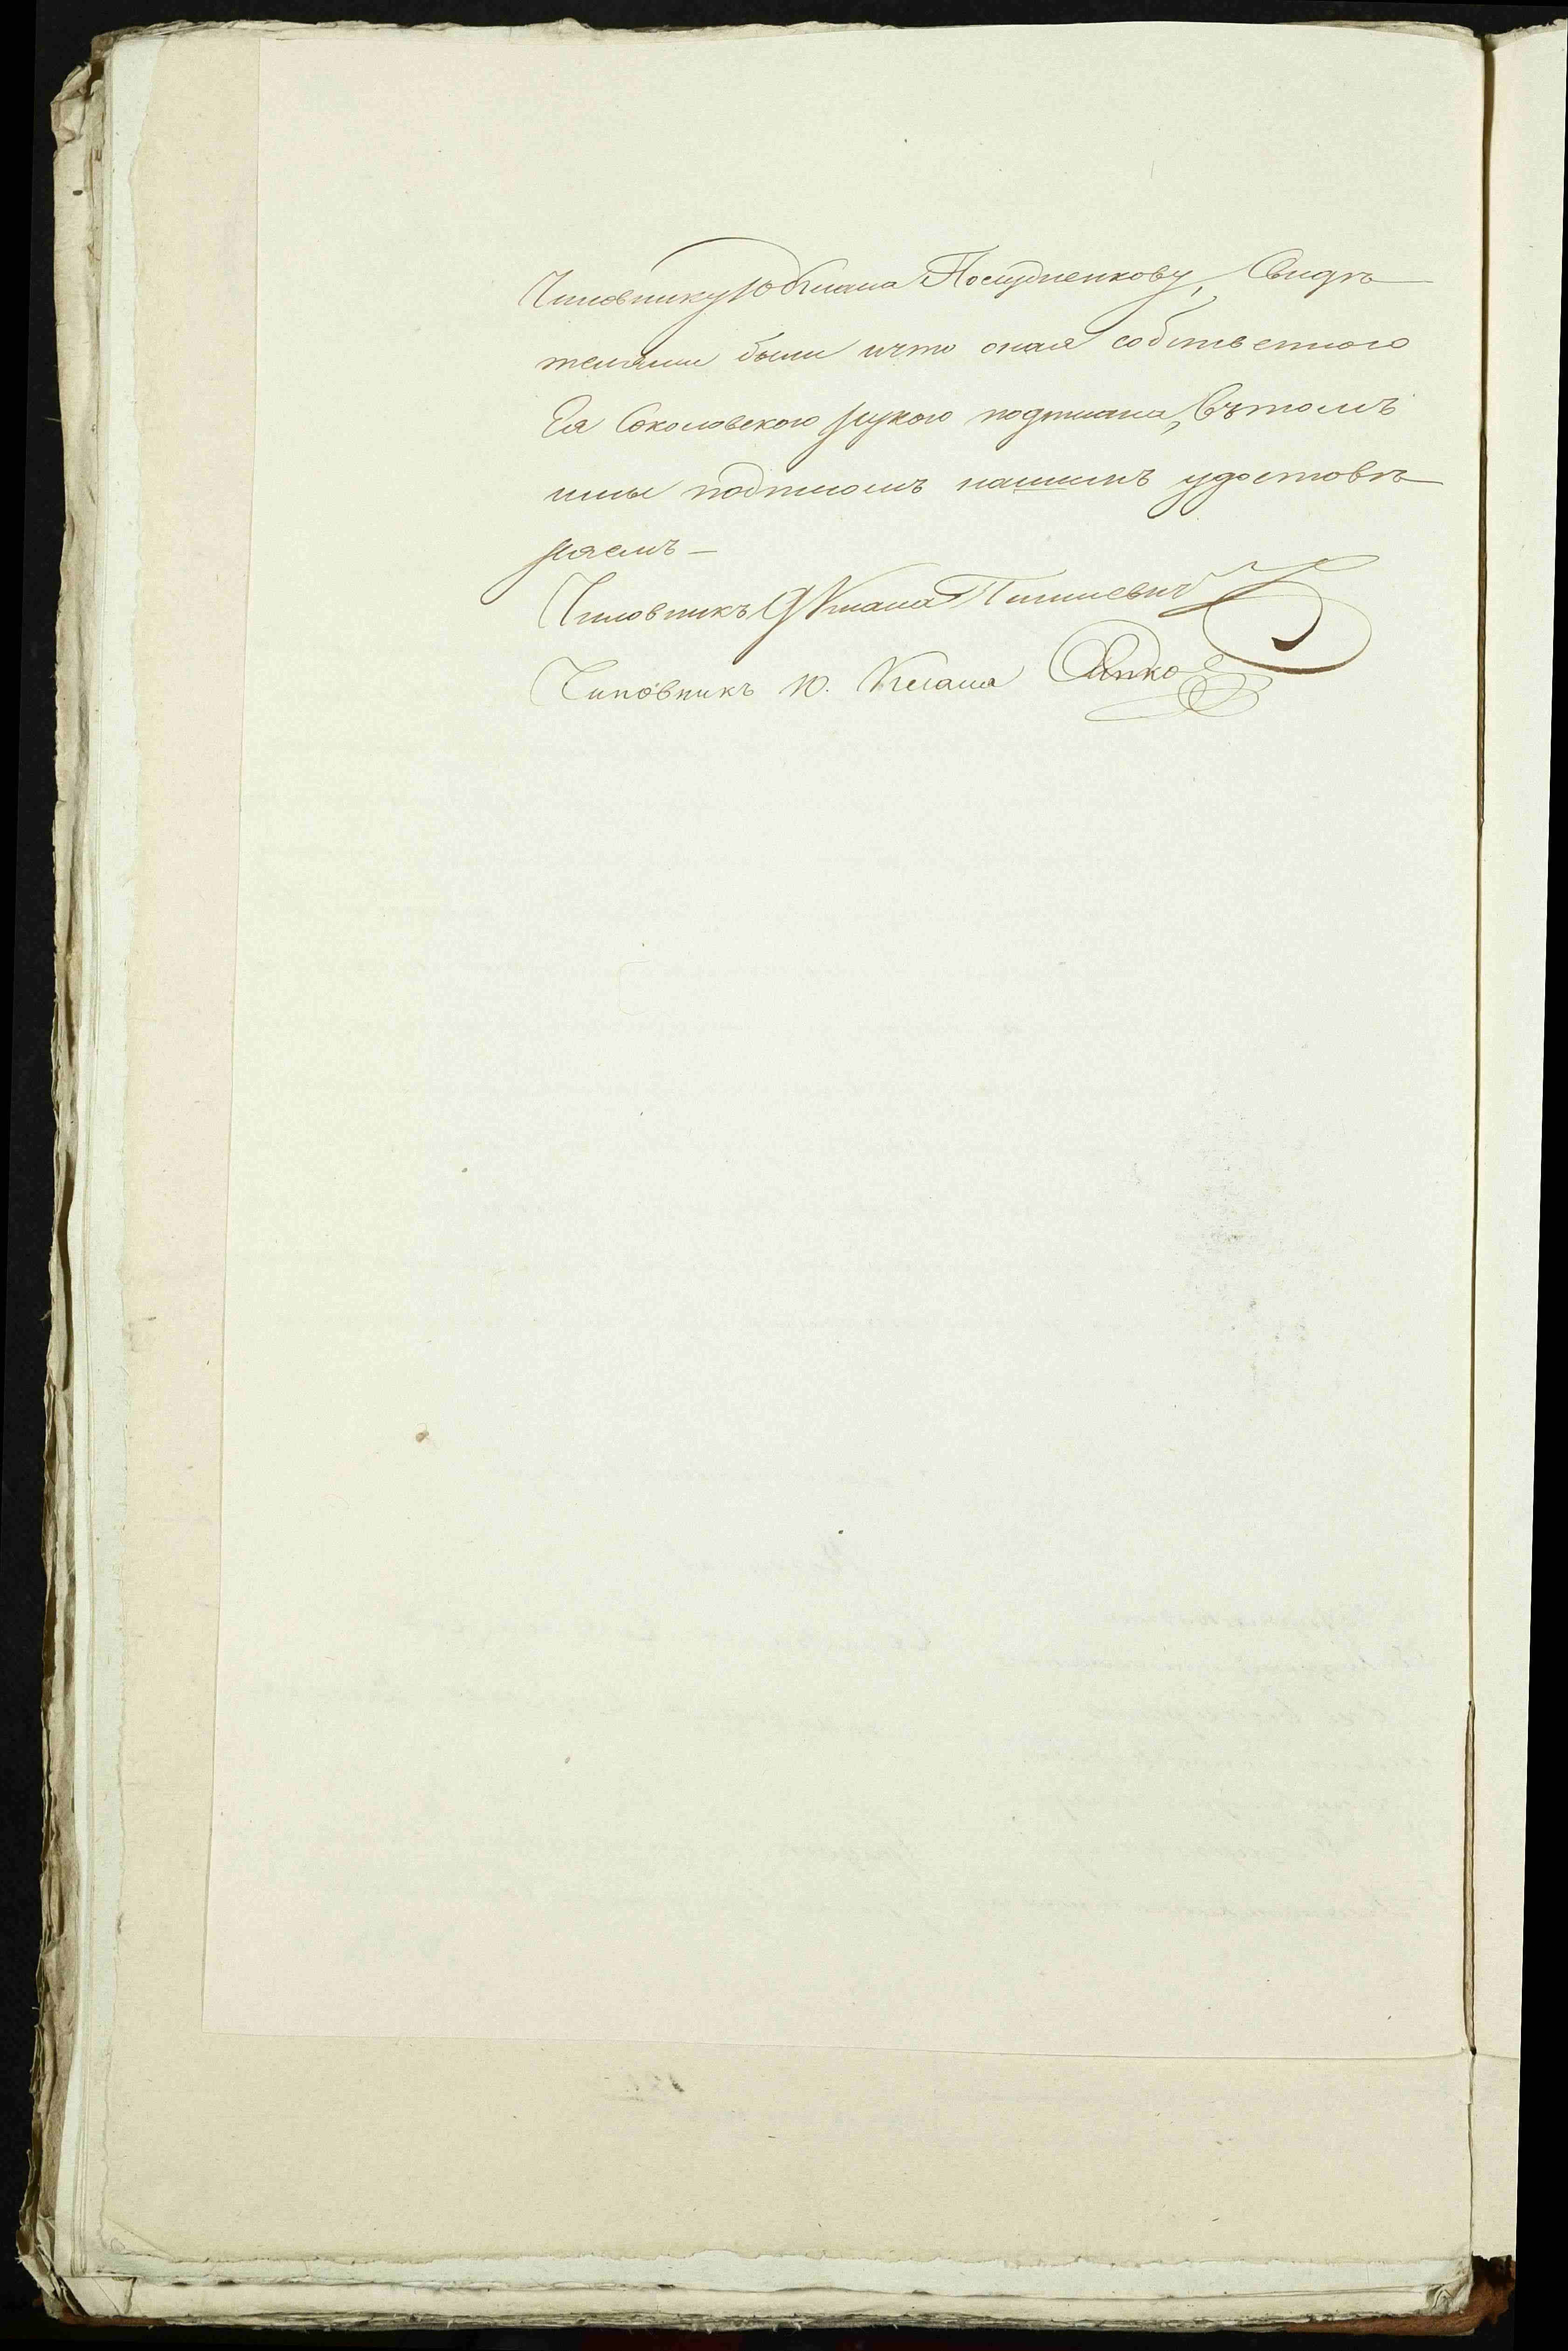 Чиновнику 10 Класса Полуденкову, Свидѣ
телями были ичто оная собственною
Ея Соколовскою рукою подписана, Вътомъ
мы подписомъ нашимъ удостовѣ
ряемъ —
Чиновникъ 9 Класса
Чиновникъ 10. Класса